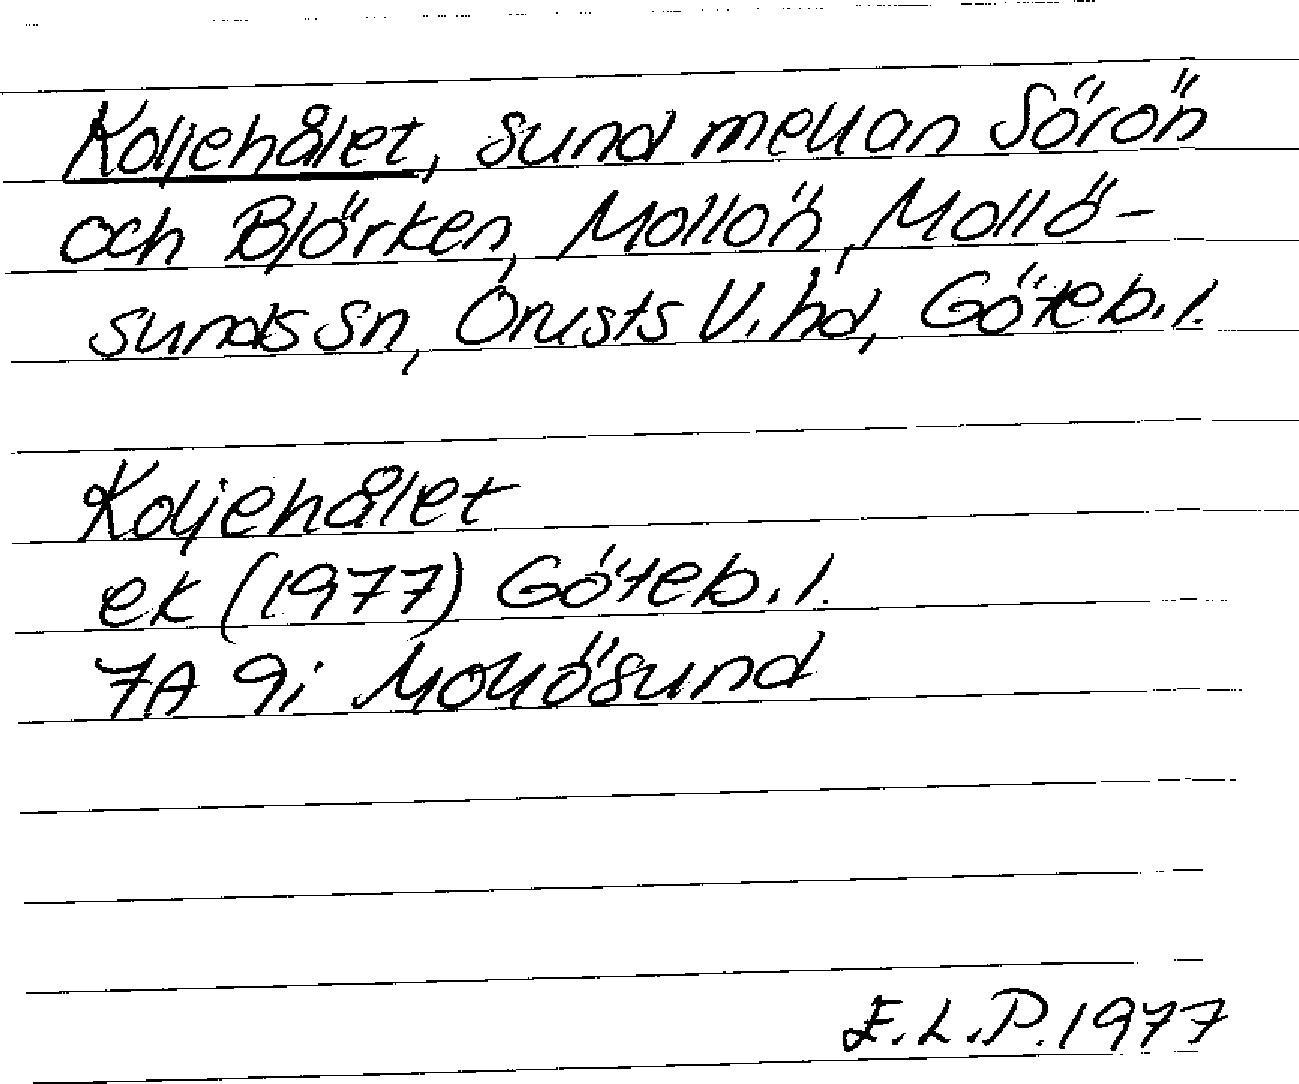 Koljehålet, sund mellan Sörön
och Björken, Mollön, Mollö-
sunds sn, Orusts V. hd, Göteb. l.
Koljehålet
ek (1977) Göteb. l.
7A 9i Mollösund
E.L.P. 1977